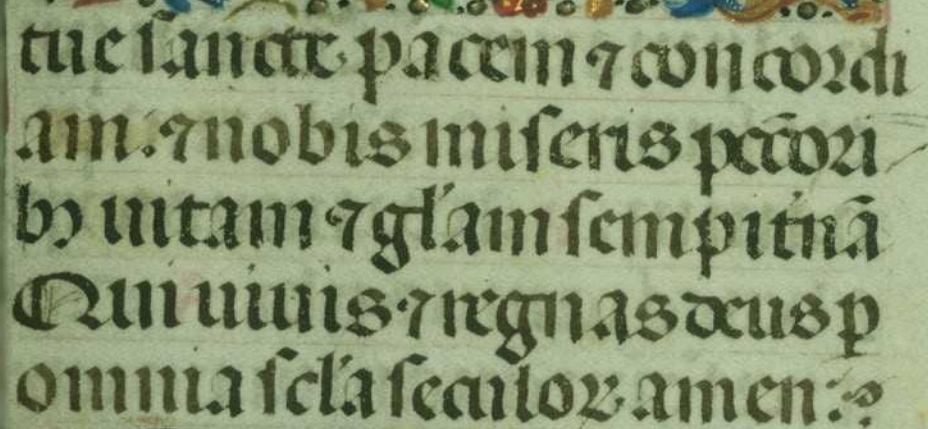 tue sancte pacem ⁊ concordi
am. ⁊ nobis miseris pcc̄ori
bꝫ uitam ⁊ gl'am sempit'nā
Qui uiuis. ⁊ regnas deus ꝑ
omnia scl'a seculoꝝ amen:.